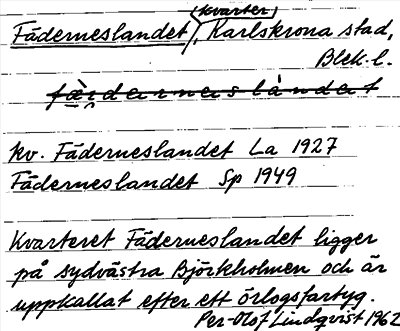 Fäderneslandet (kvarter), Karlskrona stad,
Blek. l.
fä̀rdernеslàndet
kv. Fäderneslandet La 1927
Fäderneslandet Sp 1949
Kvarteret Fäderneslandet ligger
på sydvästra Björkholmen och är
uppkallat efter ett örlogsfartyg.
Per-Olof Lindqvist 1962